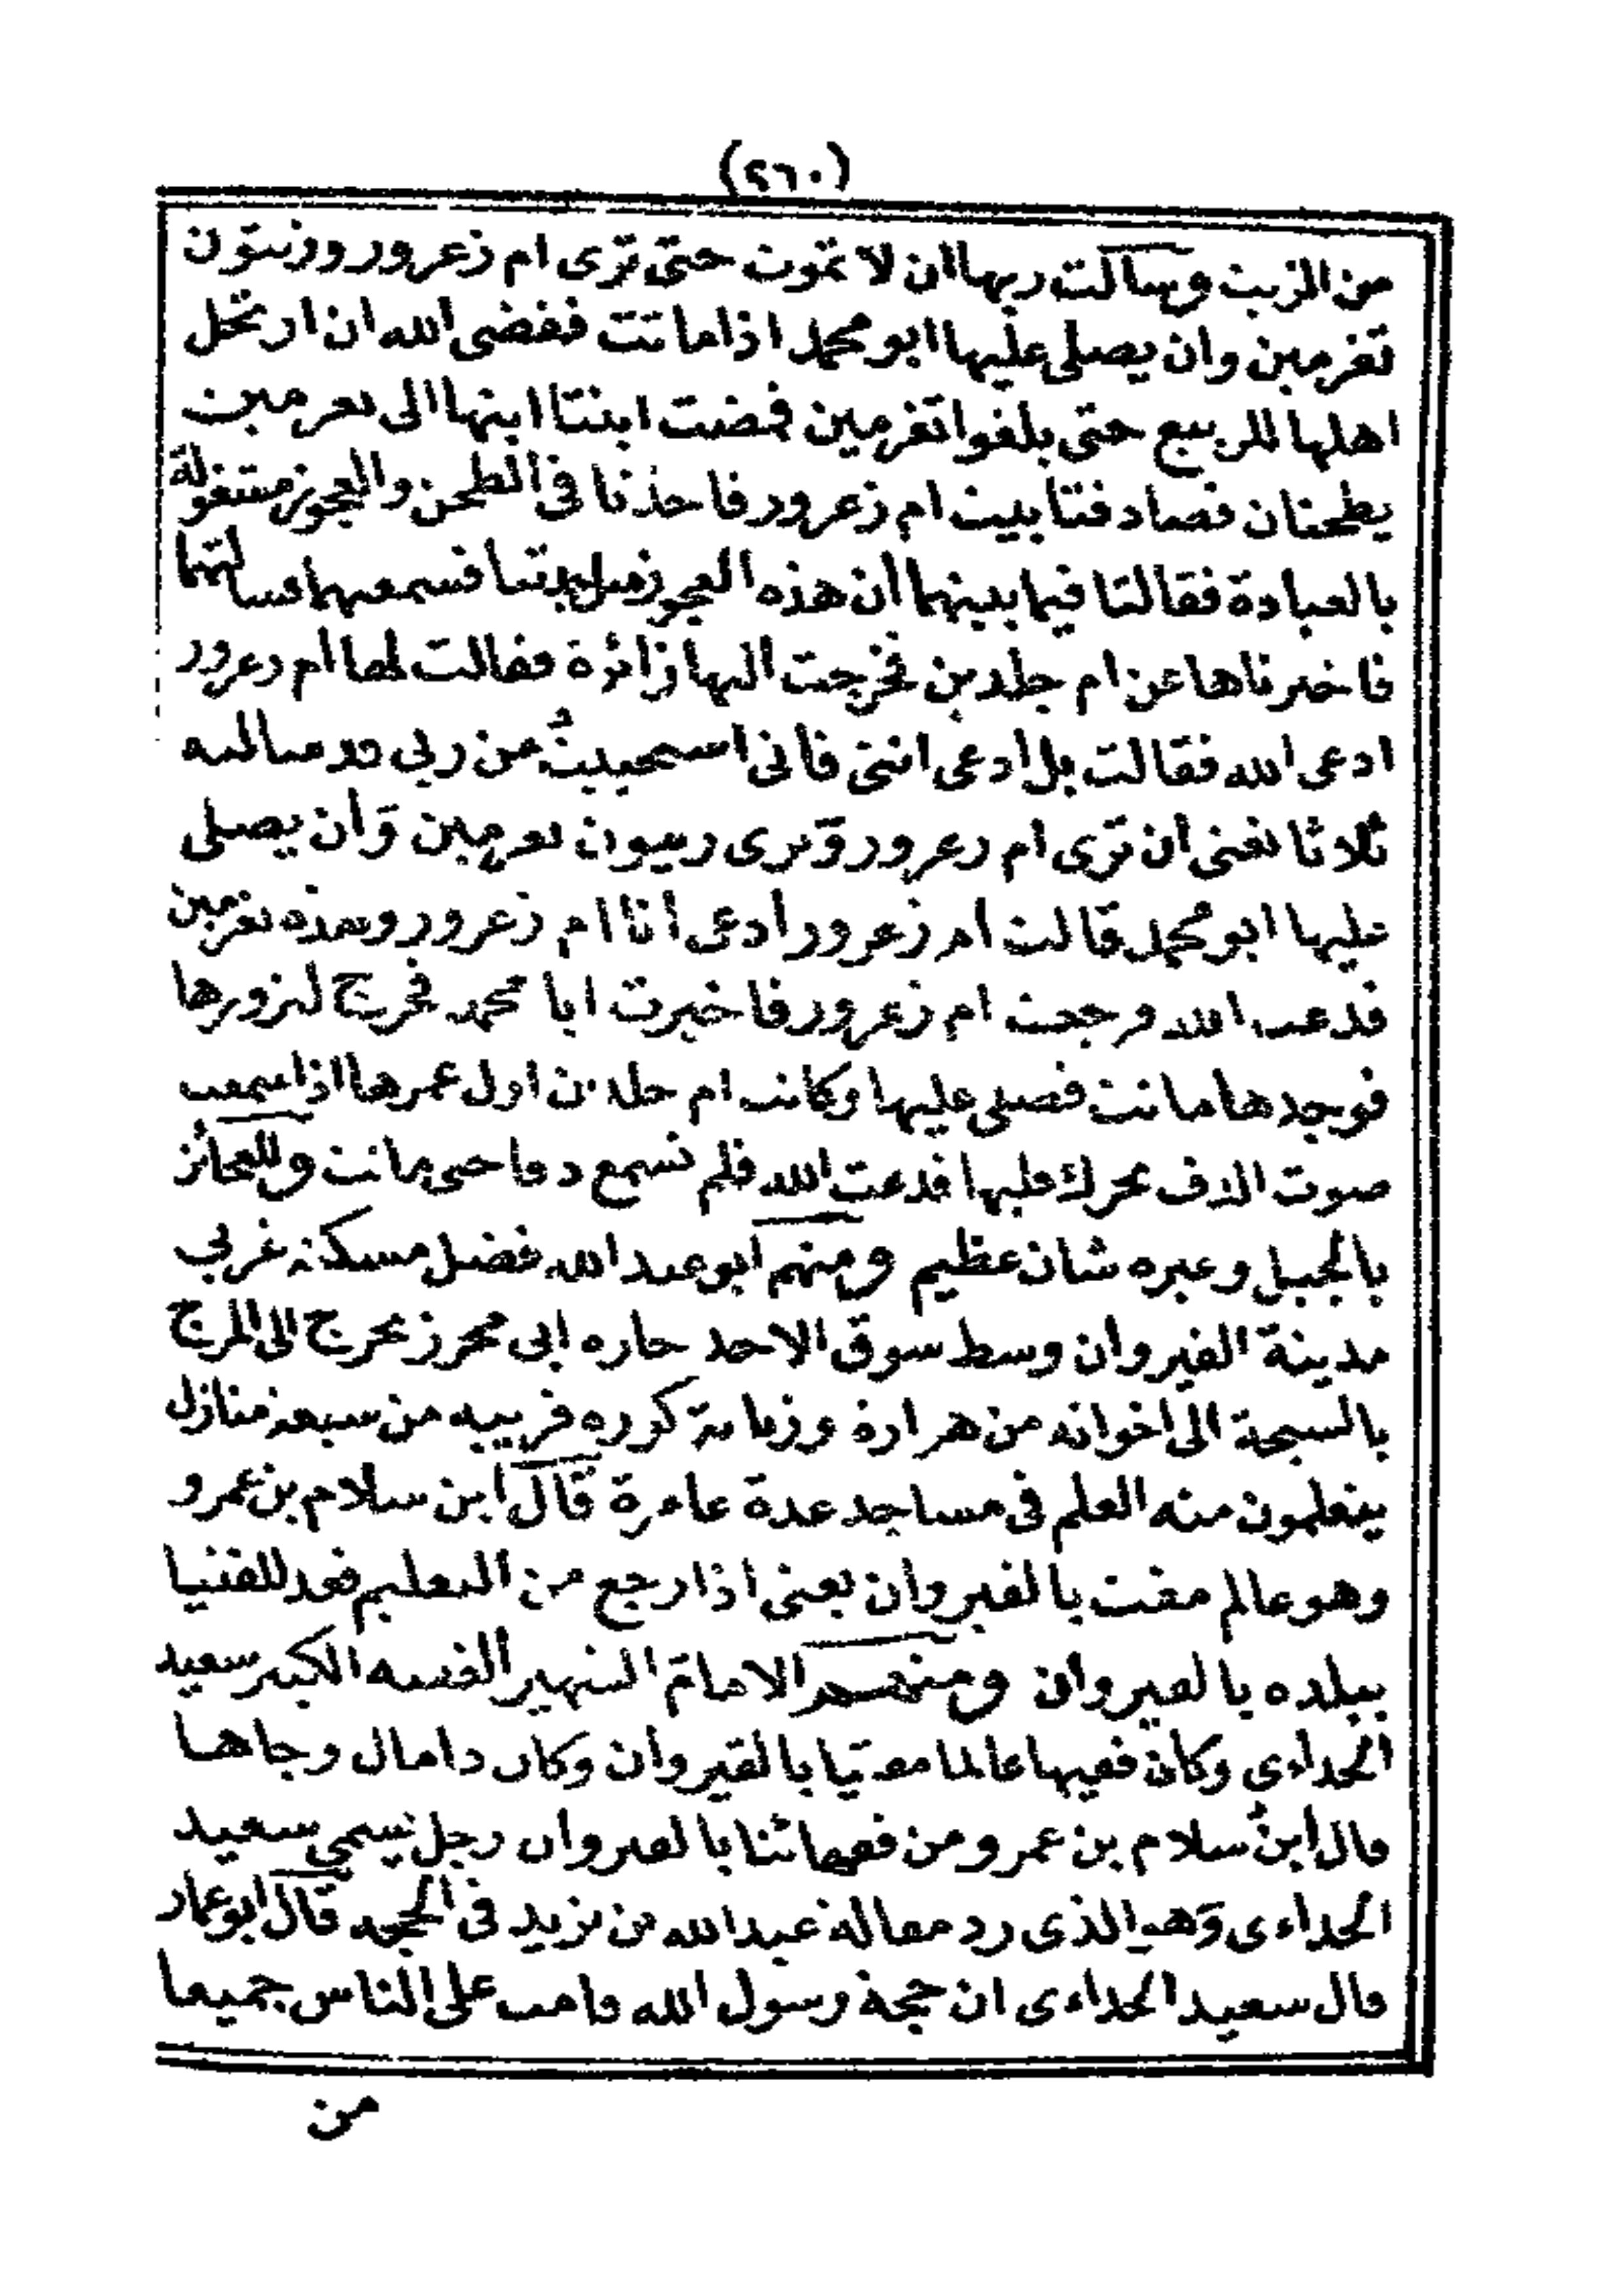 (٢٦٠)
من الزيت وسألت ربها ان لا تموت حتى ترى ام زعرور وزيتون
تغرمين وان يصلى عليها ابو محمد اذا ماتت فقضى الله ان ارتحل
اهلها للربيع حتى بلغوا تغرمين فمضت ابنتا ابنها الى تغرمين
يطحنان فصادفتا بيت ام زعرور فاخذتا فى الطحن والعجوز مشغولة
بالعبادة فقالتا فيما بينهما ان هذه العجوز مثل جدتنا فسمعتهما فسالتهما
فاخبرتاها عن ام جلدين فخرجت اليها زائرة فقالت لها ام زعرور
ادعى الله فقالت بل ادعى انتى فانى استحييتُ من ربى قد سالته
ثلاثا تعنى ان ترى ام زعرور وترى زيتون تغرمين وَان يصلى
عليها ابو محمد قالت ام زعرور ادعى انا ام زعرور وهذه تغرمين
فدعت الله ورجعت ام زعرور فاخبرت ابا محمد فخرج لزورها
فوجدها ماتت فصلى عليها وكانت ام جلدين اول عمرها اذا سمعت
صوت الدف تحرك قلبها فدعت الله فلم تسمع دفا حتى ماتت وللعجائز
بالجبل وغيره شان عظيم ومنهم ابو عبد الله فضل مسكنه غربى
مدينة القيروان وسط سوق الاحد حاره ابى محرز يخرج الى المرج
بالسبخة الى اخوانه من هرارة وزناتة كوره قريبه من سبعة منازل
يتعلمون منه العلم فى مساجد عدة عامرة قال ابن سلام بن عمرو
وهو عالم مفت بالقيروان يعنى اذا رجع من التعليم قعد للفتيا
ببلده بالقيروان ومنهم الامام الشهير الفقيه الكبير سعيد
الحداءى وكان فقيها عالما مفتيا بالقيروان وكان ذا مال وجاها
قال ابنُ سلام بن عمرو ومن فقهائنا بالقيروان رجل يسمى سعيد
الحداءى وَهو الذى رد مقالة عبد الله بن يزيد فى الحجه قال ابو عمار
قال سعيد الحداءى ان حجة رسول الله قامت على الناس جميعا
من